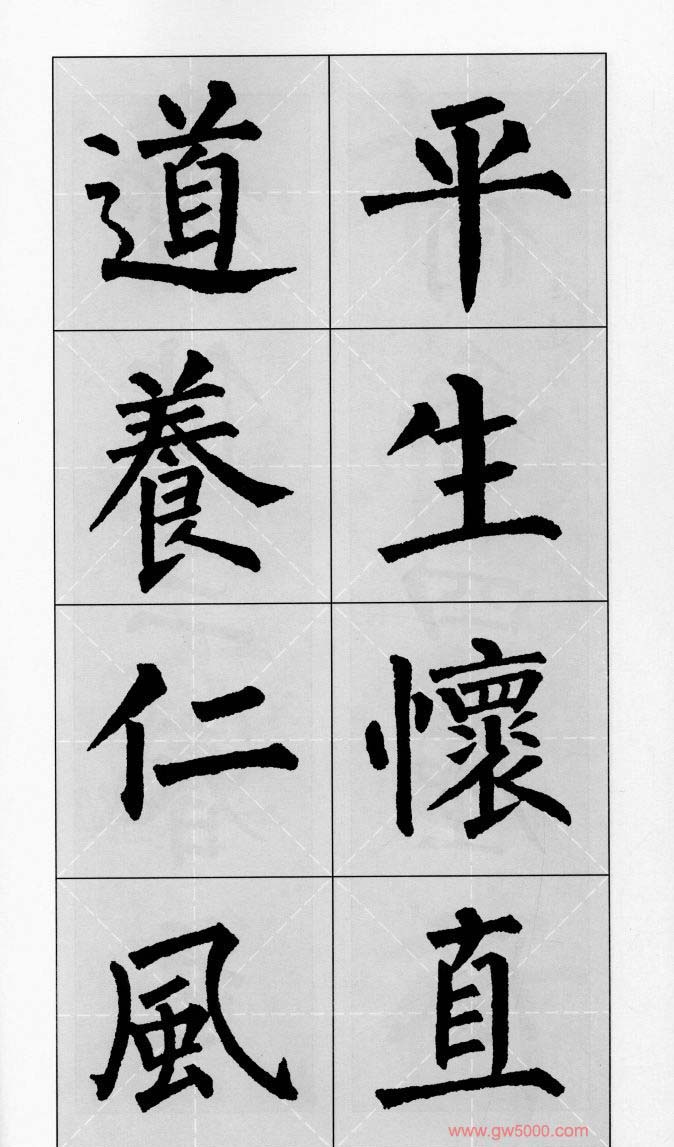 平生懷直
道養仁風
www.gw5000.com